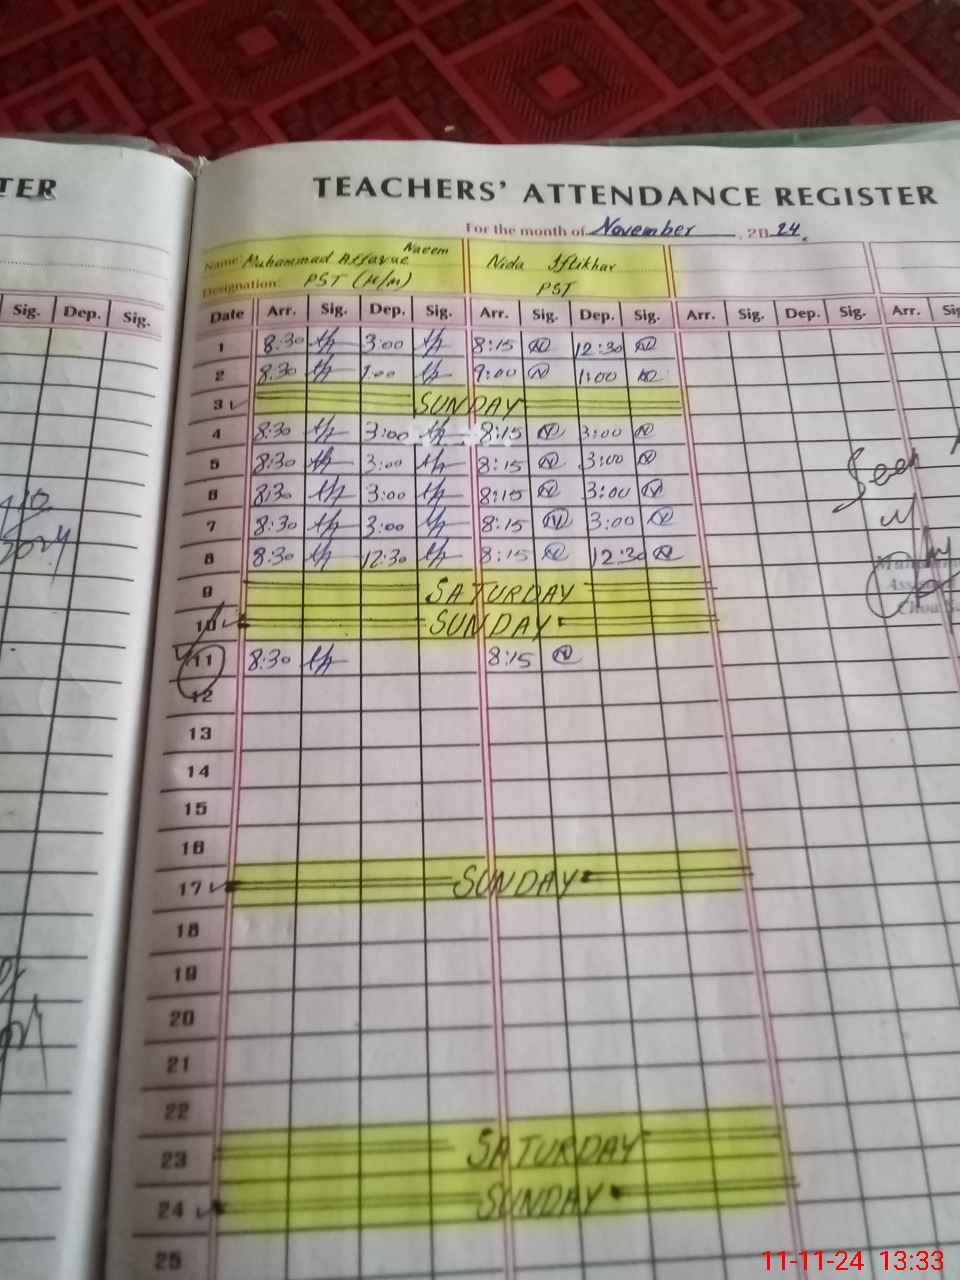 TER
TEACHERS' ATTENDANCE REGISTER
For the month of November, 2024.
Name: Muhammad Naeem
Nida Iftikhar
Designation: PST (H/M)
PST
Sig. Dep. Sig.
Date Arr. Sig. Dep. Sig. Arr. Sig. Dep. Sig. Arr. Sig. Dep. Sig. Arr.
1 8:30 3:00 8:15 12:30
2 8:30 1:00 9:00 1:00
3 SUNDAY
4 8:30 3:00 8:15 3:00
5 8:30 3:00 8:15 3:00
6 8:30 3:00 8:15 3:00
7 8:30 3:00 8:15 3:00
8 8:30 12:30 8:15 12:30
9 SATURDAY
10 SUNDAY
11 8:30 8:15
12
13
14
15
16
17 SUNDAY
18
19
20
21
22
23 SATURDAY
24 SUNDAY
25
Seen
11-11-24 13:33